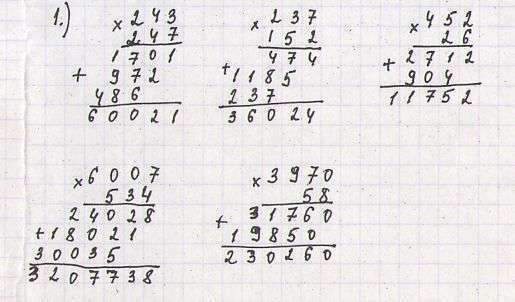 1.)
× 243
247
1701
+ 972
486
60021
× 237
152
474
+ 1185
237
36024
× 452
26
+ 2712
904
11752
× 6007
534
24028
+ 18021
30035
3207738
× 3970
58
+ 31760
19850
230260